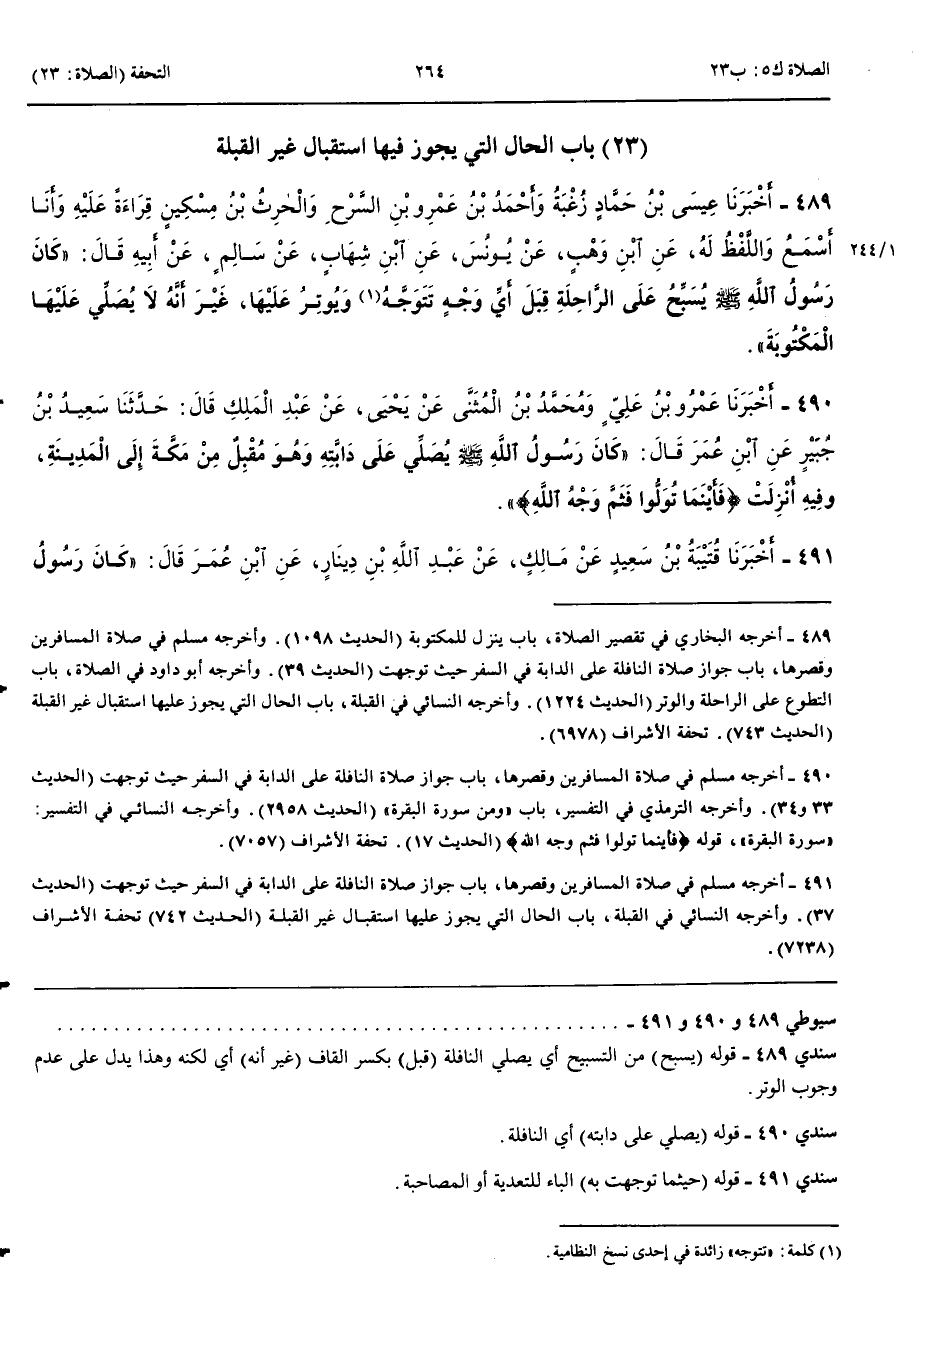 الصلاة ك٥: ب٢٣
٢٦٤
التحفة (الصلاة: ٢٣)
(٢٣) باب الحال التي يجوز فيها استقبال غير القبلة
٤٨٩ - أَخْبَرَنَا عِيسَى بْنُ حَمَّادٍ زُغْبَةُ وَأَحْمَدُ بْنُ عَمْرِو بْنِ السَّرْحِ وَالْحٰرِثُ بْنُ مِسْكِينٍ قِرَاءَةً عَلَيْهِ وَأَنَا
٢٤٤/١
أَسْمَعُ وَاللَّفْظُ لَهُ، عَنِ ٱبْنِ وَهْبٍ، عَنْ يُونُسَ، عَنِ ٱبْنِ شِهَابٍ، عَنْ سَالِمٍ، عَنْ أَبِيهِ قَالَ: «كَانَ
رَسُولُ ٱللَّهِ ﷺ يُسَبِّحُ عَلَى الرَّاحِلَةِ قِبَلَ أَيِّ وَجْهٍ تَتَوَجَّهُ(١) وَيُوتِرُ عَلَيْهَا، غَيْرَ أَنَّهُ لَا يُصَلِّي عَلَيْهَا
الْمَكْتُوبَةَ».
٤٩٠ - أَخْبَرَنَا عَمْرُو بْنُ عَلِيٍّ وَمُحَمَّدُ بْنُ الْمُثَنَّى عَنْ يَحْيَى، عَنْ عَبْدِ الْمَلِكِ قَالَ: حَدَّثَنَا سَعِيدُ بْنُ
جُبَيْرٍ عَنِ ٱبْنِ عُمَرَ قَالَ: «كَانَ رَسُولُ ٱللَّهِ ﷺ يُصَلِّي عَلَى دَابَّتِهِ وَهُوَ مُقْبِلٌ مِنْ مَكَّةَ إِلَى الْمَدِينَةِ،
وَفِيهِ أُنْزِلَتْ ﴿فَأَيْنَمَا تُوَلُّوا فَثَمَّ وَجْهُ ٱللَّهِ﴾».
٤٩١ - أَخْبَرَنَا قُتَيْبَةُ بْنُ سَعِيدٍ عَنْ مَالِكٍ، عَنْ عَبْدِ ٱللَّهِ بْنِ دِينَارٍ، عَنِ ٱبْنِ عُمَرَ قَالَ: «كَانَ رَسُولُ
٤٨٩ - أخرجه البخاري في تقصير الصلاة، باب ينزل للمكتوبة (الحديث ١٠٩٨). وأخرجه مسلم في صلاة المسافرين
وقصرها، باب جواز صلاة النافلة على الدابة في السفر حيث توجهت (الحديث ٣٩). وأخرجه أبو داود في الصلاة، باب
التطوع على الراحلة والوتر (الحديث ١٢٢٤). وأخرجه النسائي في القبلة، باب الحال التي يجوز عليها استقبال غير القبلة
(الحديث ٧٤٣). تحفة الأشراف (٦٩٧٨).
٤٩٠ - أخرجه مسلم في صلاة المسافرين وقصرها، باب جواز صلاة النافلة على الدابة في السفر حيث توجهت (الحديث
٣٣ و٣٤). وأخرجه الترمذي في التفسير، باب «ومن سورة البقرة» (الحديث ٢٩٥٨). وأخرجه النسائي في التفسير:
«سورة البقرة»، قوله ﴿فأينما تولوا فثم وجه الله﴾ (الحديث ١٧). تحفة الأشراف (٧٠٥٧).
٤٩١ - أخرجه مسلم في صلاة المسافرين وقصرها، باب جواز صلاة النافلة على الدابة في السفر حيث توجهت (الحديث
٣٧). وأخرجه النسائي في القبلة، باب الحال التي يجوز عليها استقبال غير القبلة (الحديث ٧٤٢) تحفة الأشراف
(٧٢٣٨).
سيوطي ٤٨٩ و ٤٩٠ و ٤٩١ - ..................................................
سندي ٤٨٩ - قوله (يسبح) من التسبيح أي يصلي النافلة (قبل) بكسر القاف (غير أنه) أي لكنه وهذا يدل على عدم
وجوب الوتر.
سندي ٤٩٠ - قوله (يصلي على دابته) أي النافلة.
سندي ٤٩١ - قوله (حيثما توجهت به) الباء للتعدية أو المصاحبة.
(١) كلمة: «تتوجه» زائدة في إحدى نسخ النظامية.